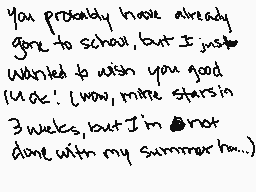 You probably have already
gone to school, but I just
wanted to wish you good
luck! (wow, mine stars in
3 weeks, but I'm not
done with my summer hw...)